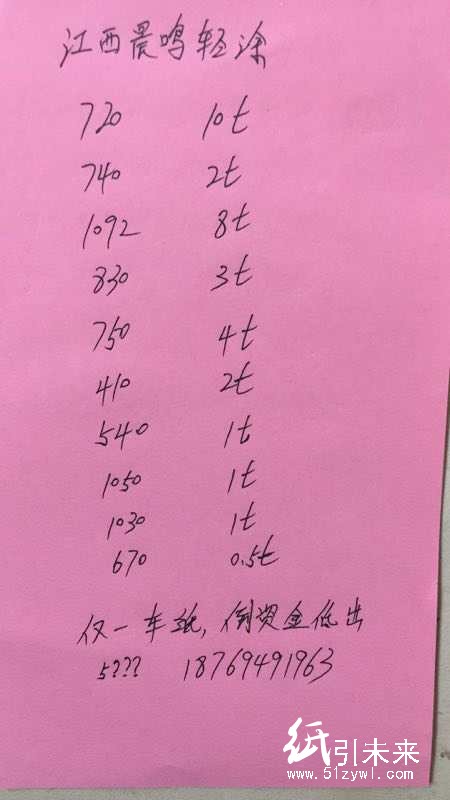 江西晨鸣轻涂
720 10t
740 2t
1092 8t
830 3t
750 4t
410 2t
540 1t
1050 1t
1030 1t
670 0.5t
仅一车纸，倒资金低出
5??? 18769491963
纸引未来
www.51zywl.com